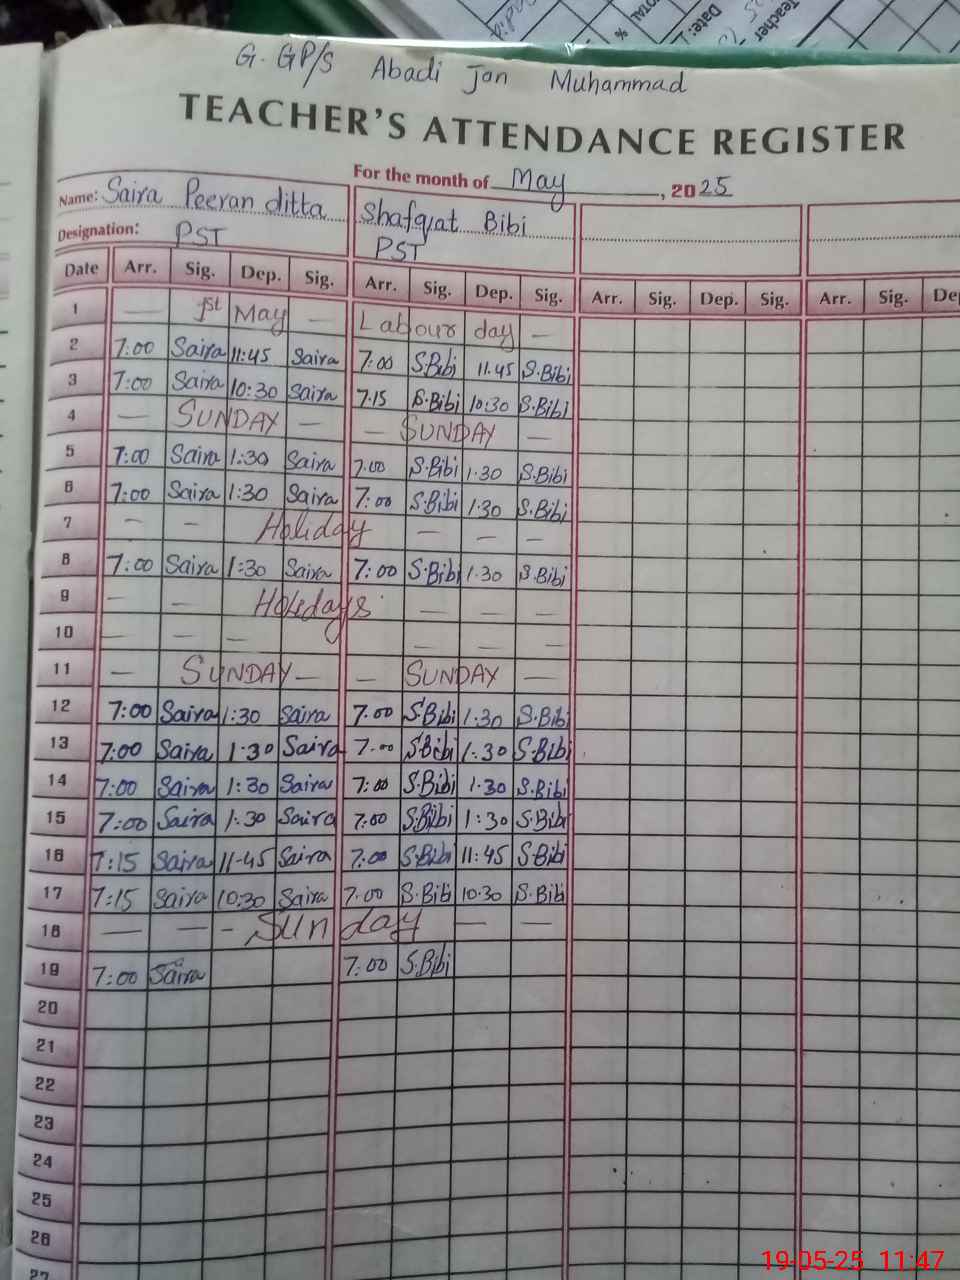 G. GP/S Abadi Jan Muhammad
TEACHER'S ATTENDANCE REGISTER
For the month of May, 2025
Name: Saira Peeran ditta Shafqat Bibi
Designation: PST PST
Date Arr. Sig. Dep. Sig. Arr. Sig. Dep. Sig. Arr. Sig. Dep. Sig. Arr. Sig.
1 — 1st May — Labour day —
2 7:00 Saira 11:45 Saira 7:00 S.Bibi 11.45 S.Bibi
3 7:00 Saira 10:30 Saira 7.15 S.Bibi 10:30 S.Bibi
4 — SUNDAY — — SUNDAY —
5 7:00 Saira 1:30 Saira 7:00 S.Bibi 1.30 S.Bibi
6 7:00 Saira 1:30 Saira 7:00 S.Bibi 1.30 S.Bibi
7 — — Holiday — — —
8 7:00 Saira 1:30 Saira 7:00 S.Bibi 1.30 S.Bibi
9 — — Holidays — — —
10 — — — — — —
11 — SUNDAY — — SUNDAY —
12 7:00 Saira 1:30 Saira 7.00 S.Bibi 1.30 S.Bibi
13 7:00 Saira 1:30 Saira 7.00 S.Bibi 1.30 S.Bibi
14 7:00 Saira 1:30 Saira 7:00 S.Bibi 1.30 S.Bibi
15 7:00 Saira 1:30 Saira 7.00 S.Bibi 1:30 S.Bibi
16 7:15 Saira 11-45 Saira 7.00 S.Bibi 11:45 S.Bibi
17 7:15 Saira 10:30 Saira 7.00 S.Bibi 10.30 S.Bibi
18 — — - Sunday — —
19 7:00 Saira 7:00 S.Bibi
20
21
22
23
24
25
26
27
19-05-25 11:47